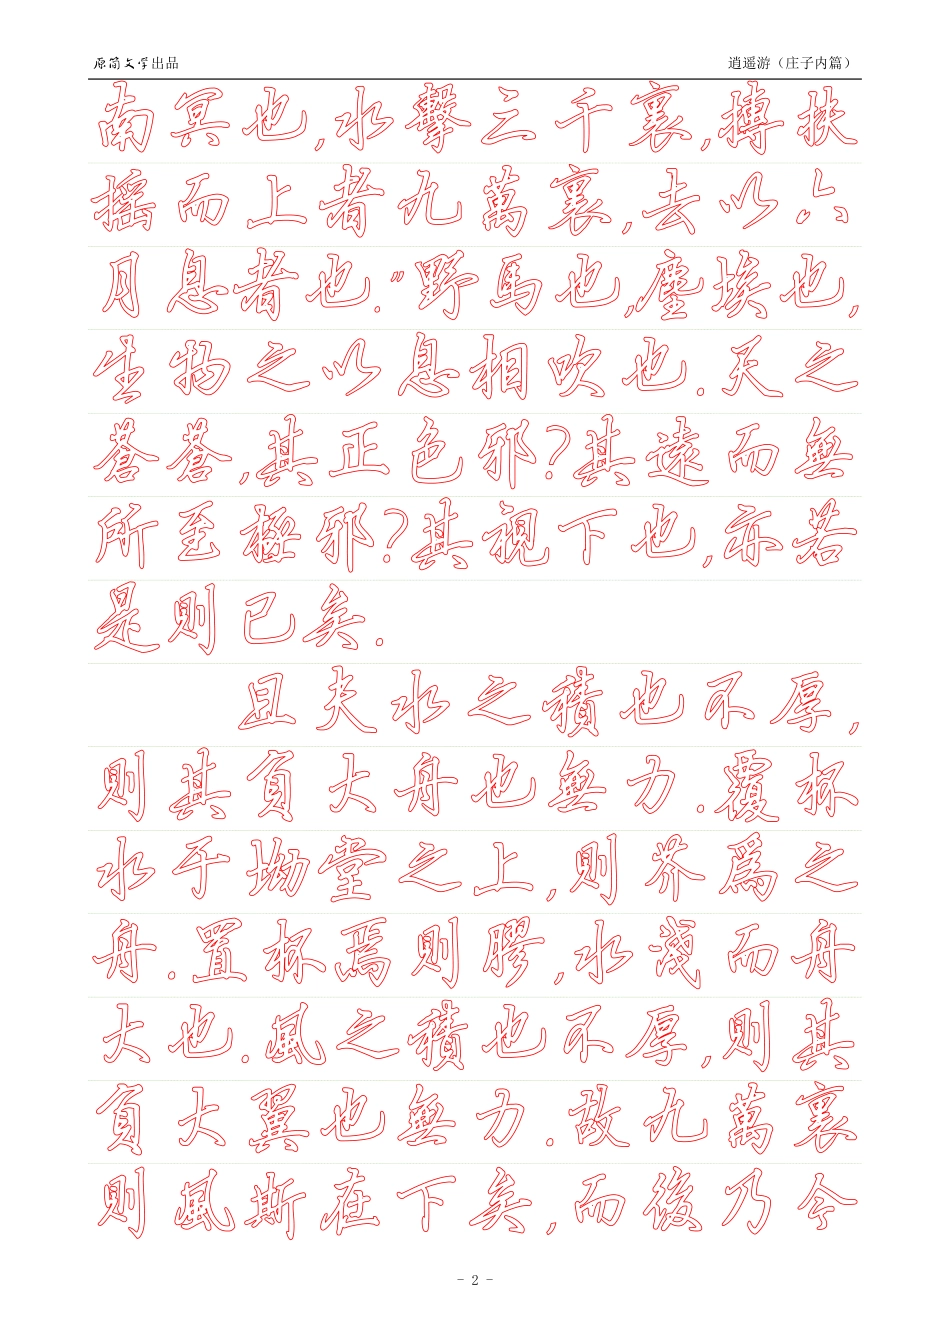 原简文学出品
逍遥游（庄子内篇）
南冥也,水擊三千裏,搏扶
摇而上者九萬裏,去以六
月息者也.”野馬也,塵埃也,
生物之以息相吹也.天之
蒼蒼,其正色邪?其遠而無
所至極邪?其視下也,亦若
是則已矣.
且夫水之積也不厚,
則其負大舟也無力.覆杯
水于坳堂之上,則芥爲之
舟.置杯焉則膠,水淺而舟
大也.風之積也不厚,則其
負大翼也無力.故九萬裏
則風斯在下矣,而後乃今
- 2 -